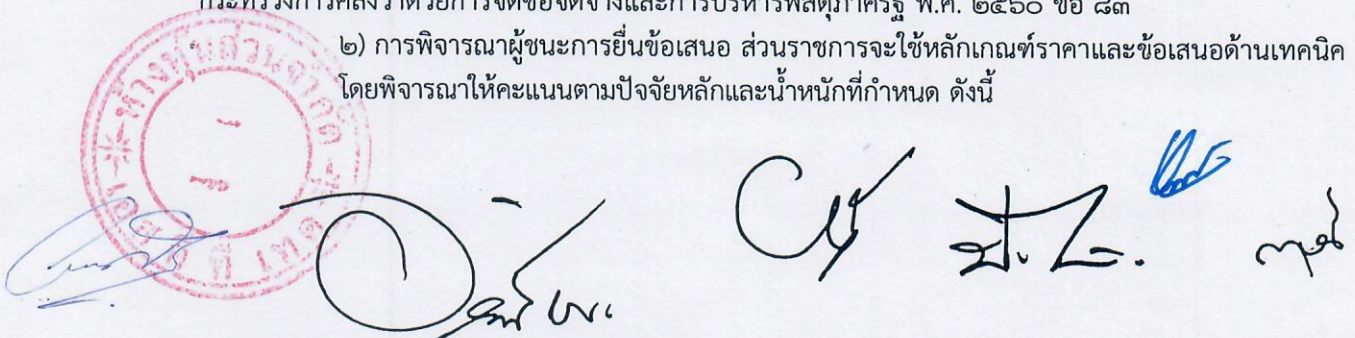 กระทรวงการคลังว่าด้วยการจัดซื้อจัดจ้างและการบริหารพัสดุภาครัฐ พ.ศ. ๒๕๖๐ ข้อ ๘๓
๒) การพิจารณาผู้ชนะการยื่นข้อเสนอ ส่วนราชการจะใช้หลักเกณฑ์ราคาและข้อเสนอด้านเทคนิค
โดยพิจารณาให้คะแนนตามปัจจัยหลักและน้ำหนักที่กำหนด ดังนี้
ห้างหุ้นส่วนจำกัด